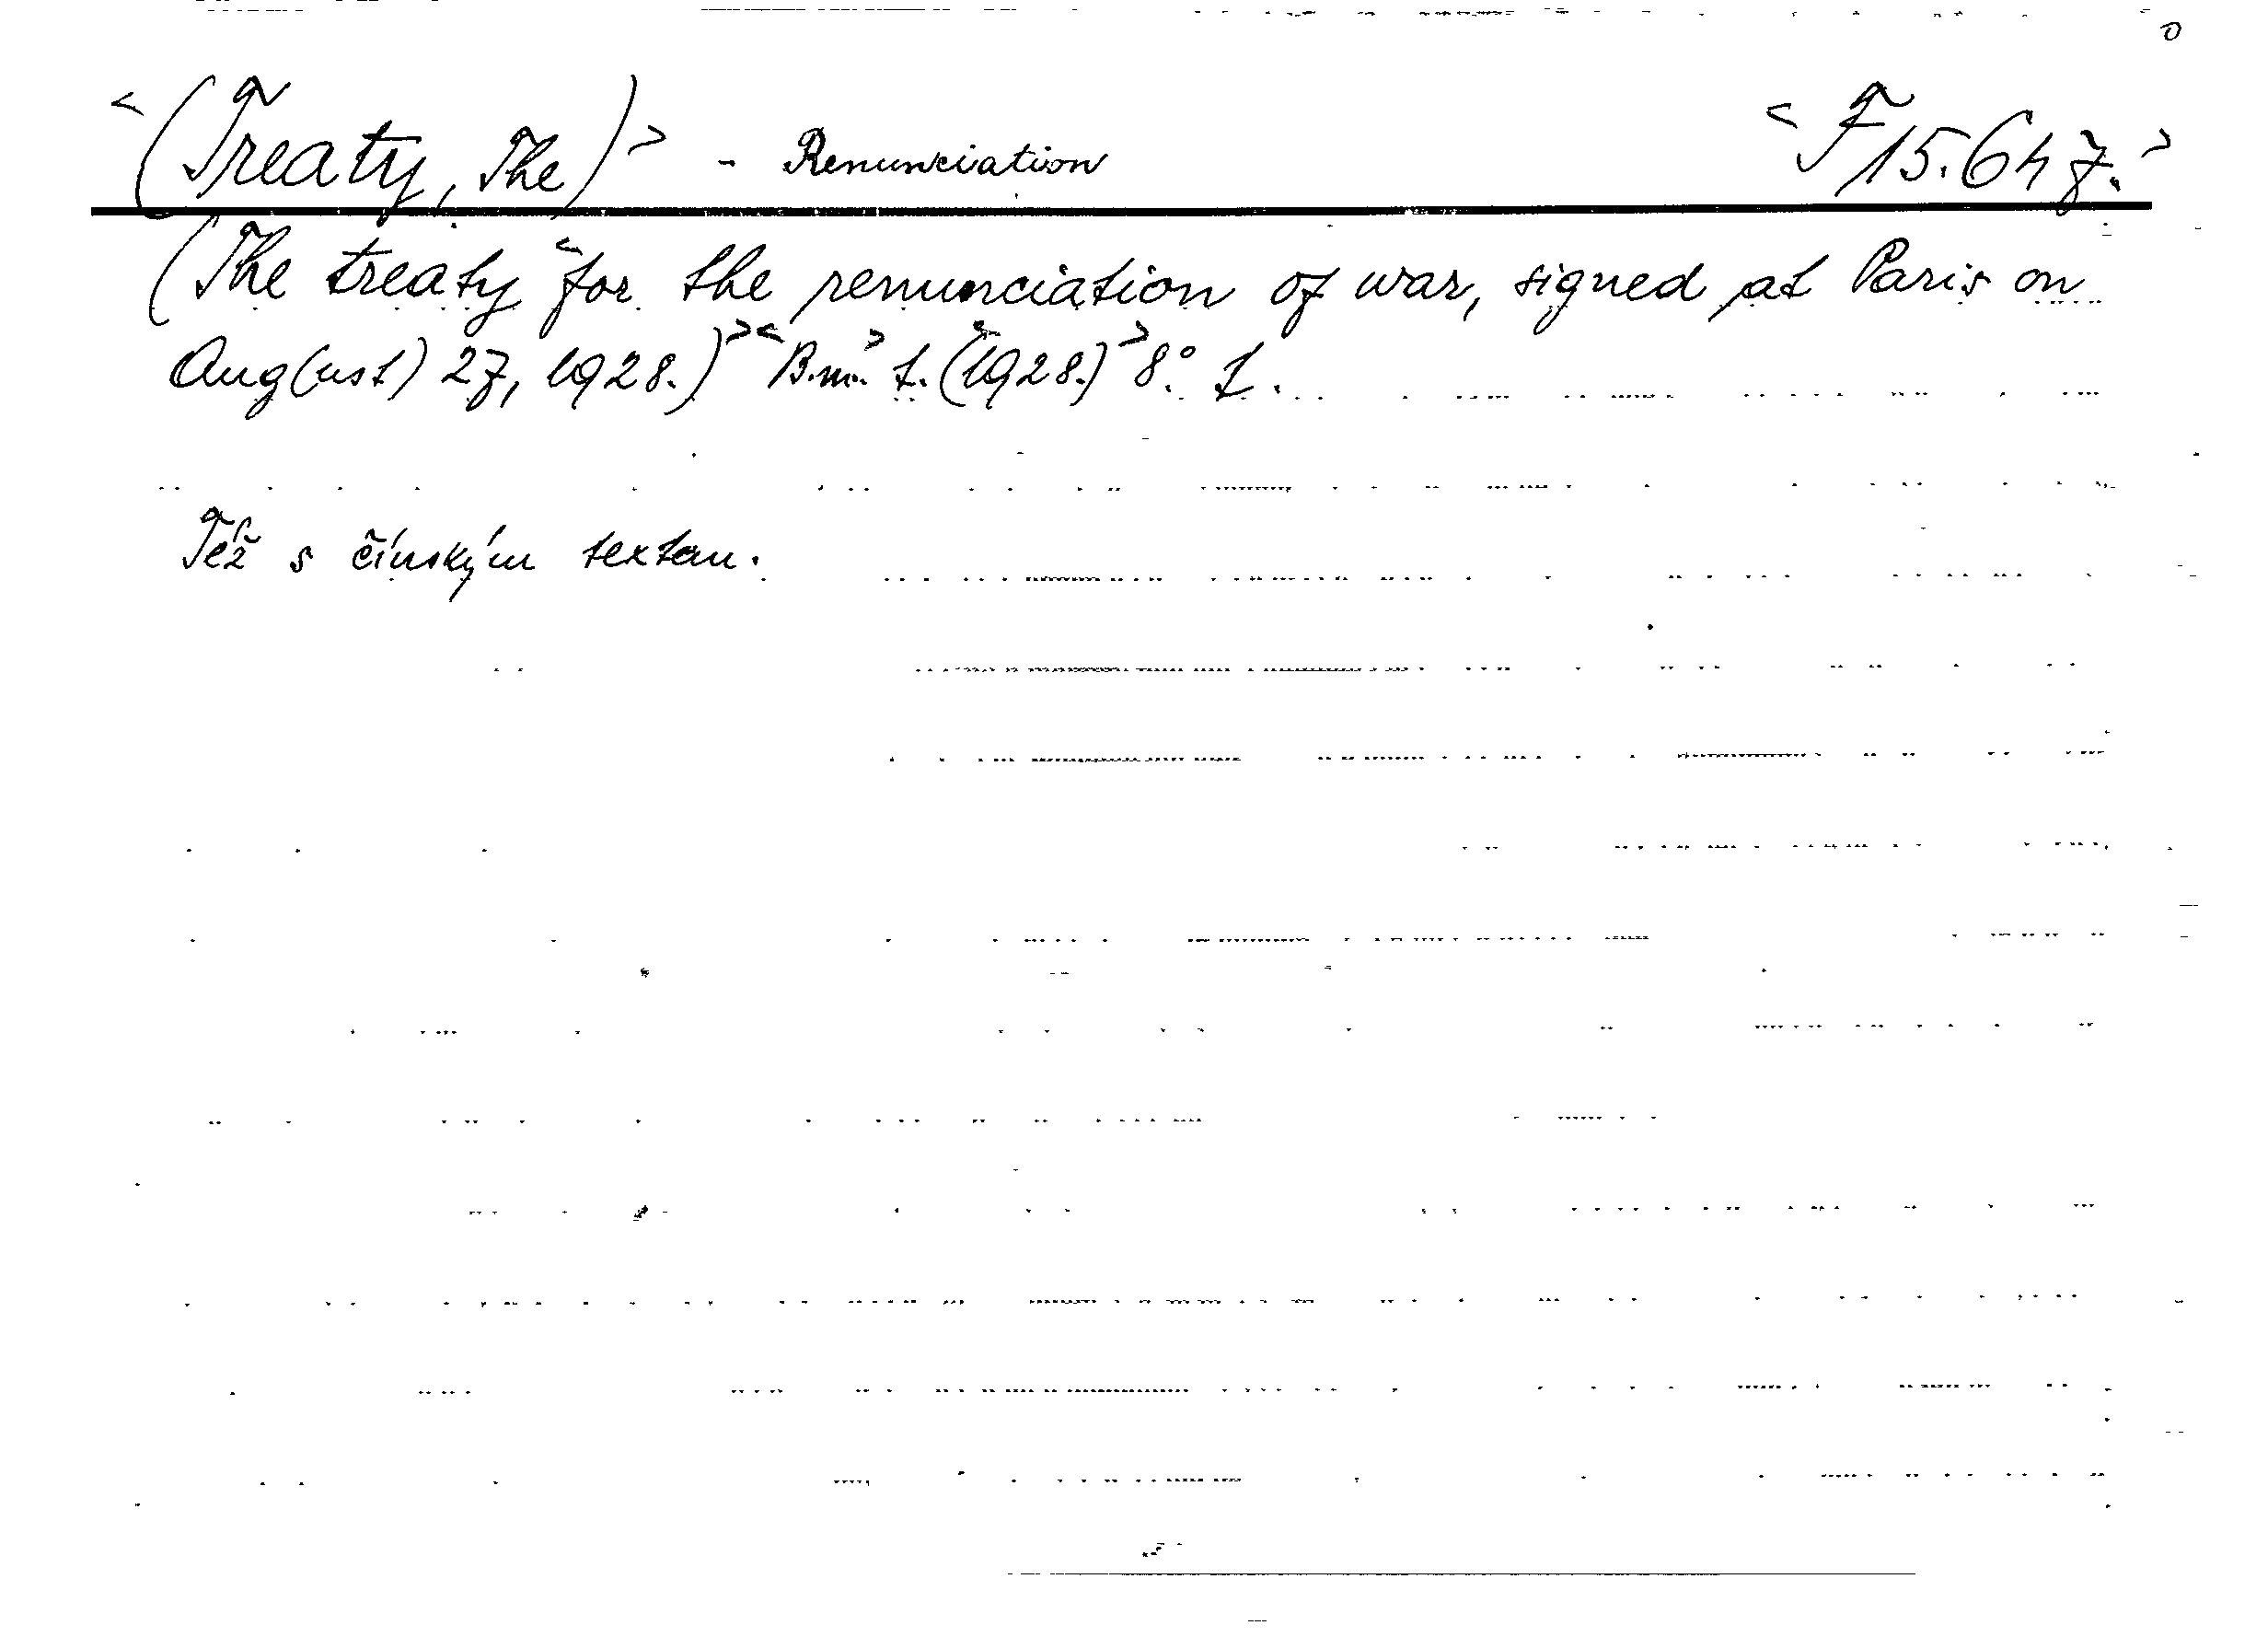 (Treaty, The) - Renunciation F 15.647.
(The treaty for the renunciation of war, signed at Paris on
Aug(ust) 27, 1928.) B.m. t. (1928.) 8° 1.
Též s čínským textem.